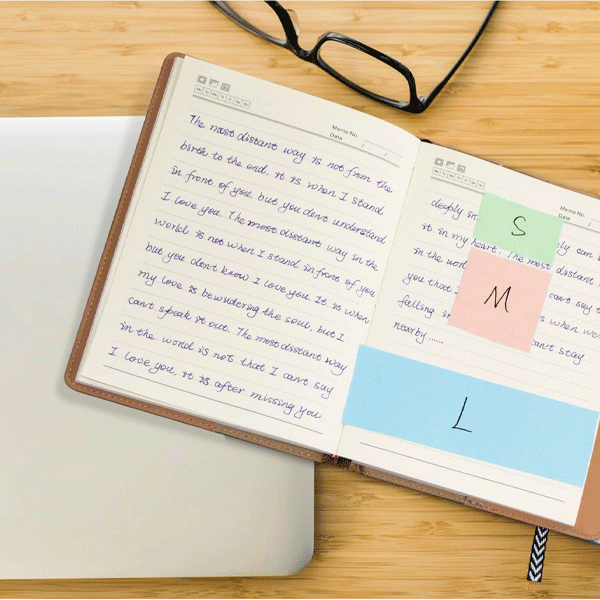 Memo No.
Date / /
The most distant way is not from the
birth to the end. it is when I stand
in front of you but you don't understand
I love you. The most distant way in the
world is not when I stand in front of you
but you don't know I love you. It is when
my love is bewidering the soul, but I
can't speak it out. The most distant way
in the world is not that I can't say
I love you. it is after missing you
Memo No.
Date /
deeply in can
it in my heart. The most distant
in the
you that I can't say
falling when
nearby...... can't stay
S
M
L